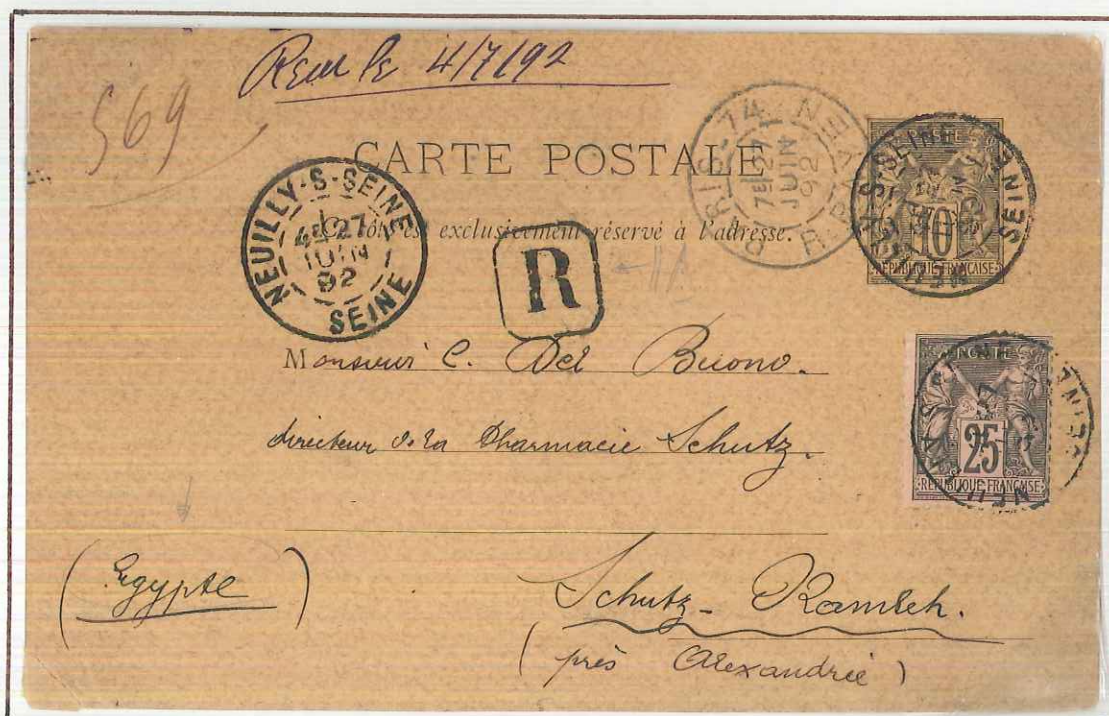 Reçu le 4/7/92
569
CARTE POSTALE
Ce côté est exclusivement réservé à l'adresse.
NEUILLY-S-SEINE
4E 27
JUIN
92
SEINE
PARIS-74
7E 27
JUIN
92
R
10
REPUBLIQUE FRANÇAISE
Monsieur C. Del Buono.
directeur de la Pharmacie Schutz.
25
REPUBLIQUE FRANÇAISE
(Egypte)
Schutz - Ramleh.
(près Alexandrie)